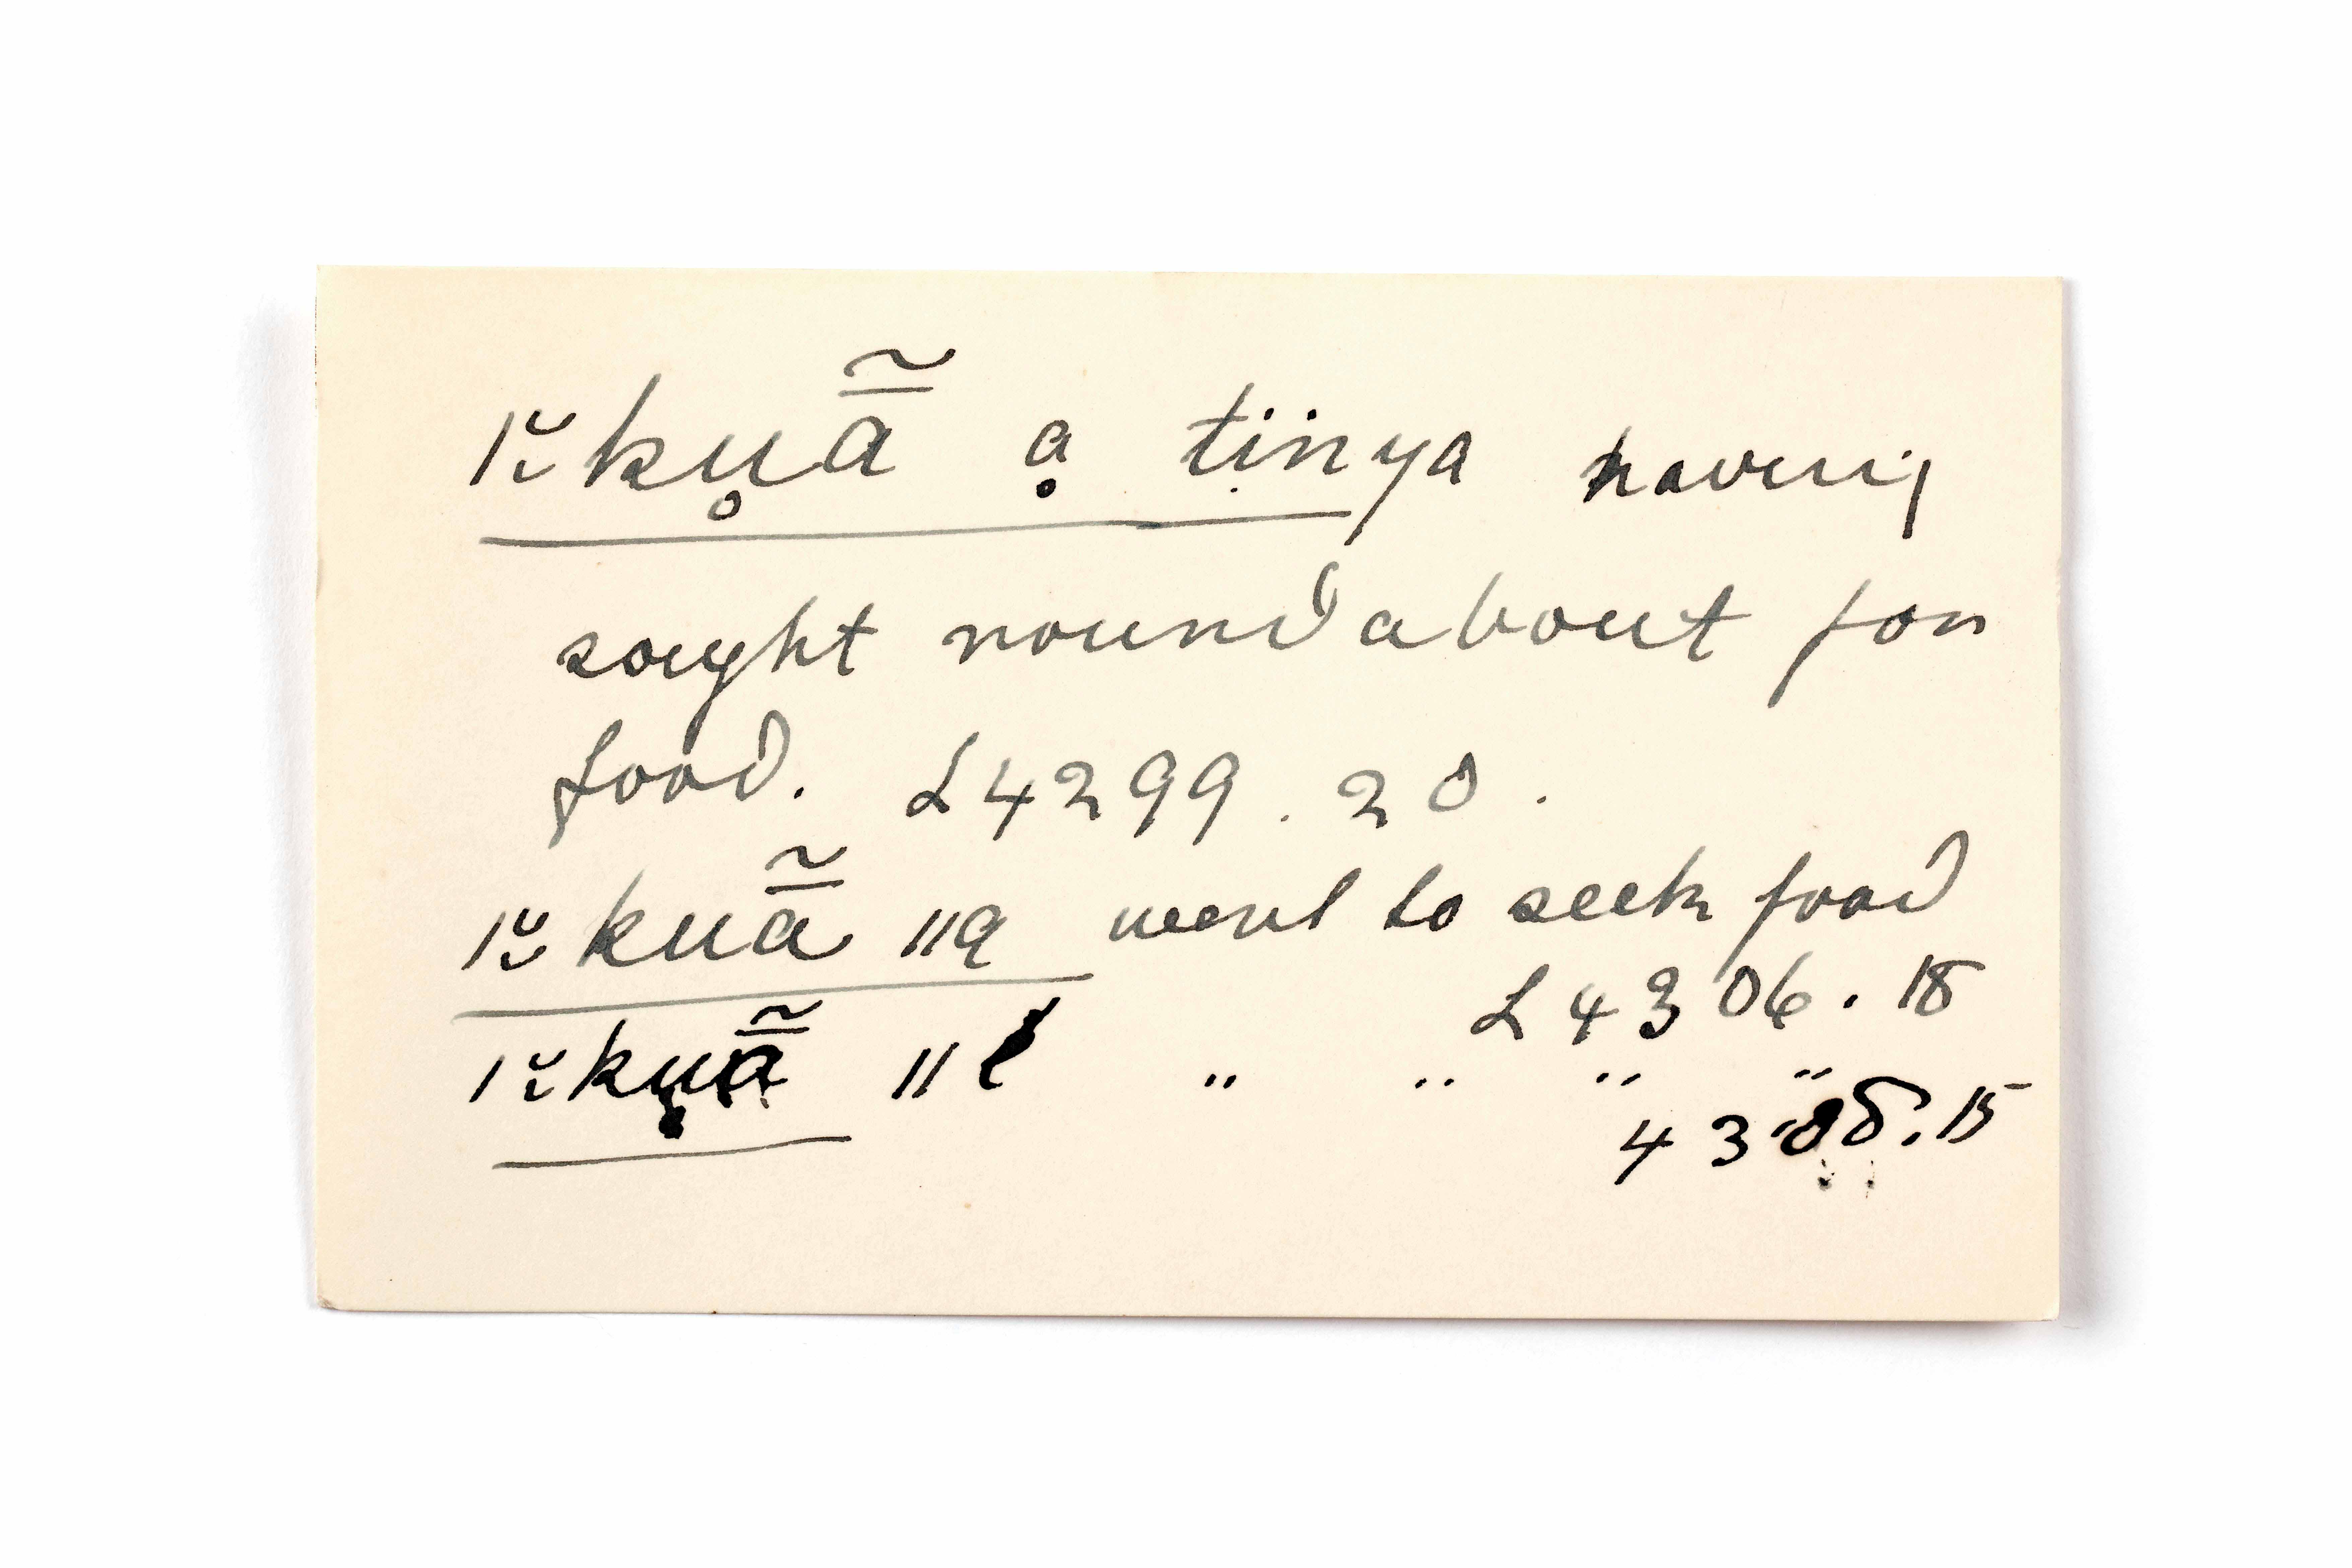 |˘˷ku̥ā̃ ạ tịn̈ya having
sought round about for
food. L4299.20.
|˘˷kuā̃ ||a went to seek food
L4306.18
|˘˷kụā̃ || " " " "
43 .15